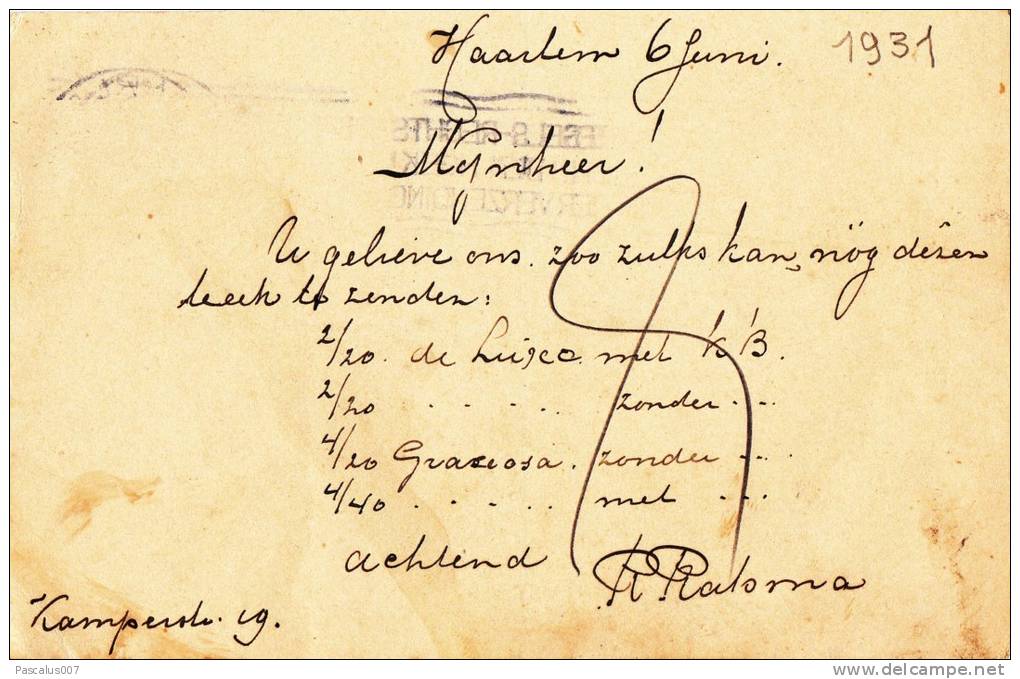 Haarlem 6 Juni. 1931
Mijnheer!
U gelieve ons. zoo zulks kan, nög dezen
week te zenden:
2/20. de Luxe. met K B.
2/20 . . . . . zonder ...
4/20 Graciosa. zonder ...
4/40 . . . . . met ...
achtend
Kamperstr. 19.
Pascalus007
delcampe.net